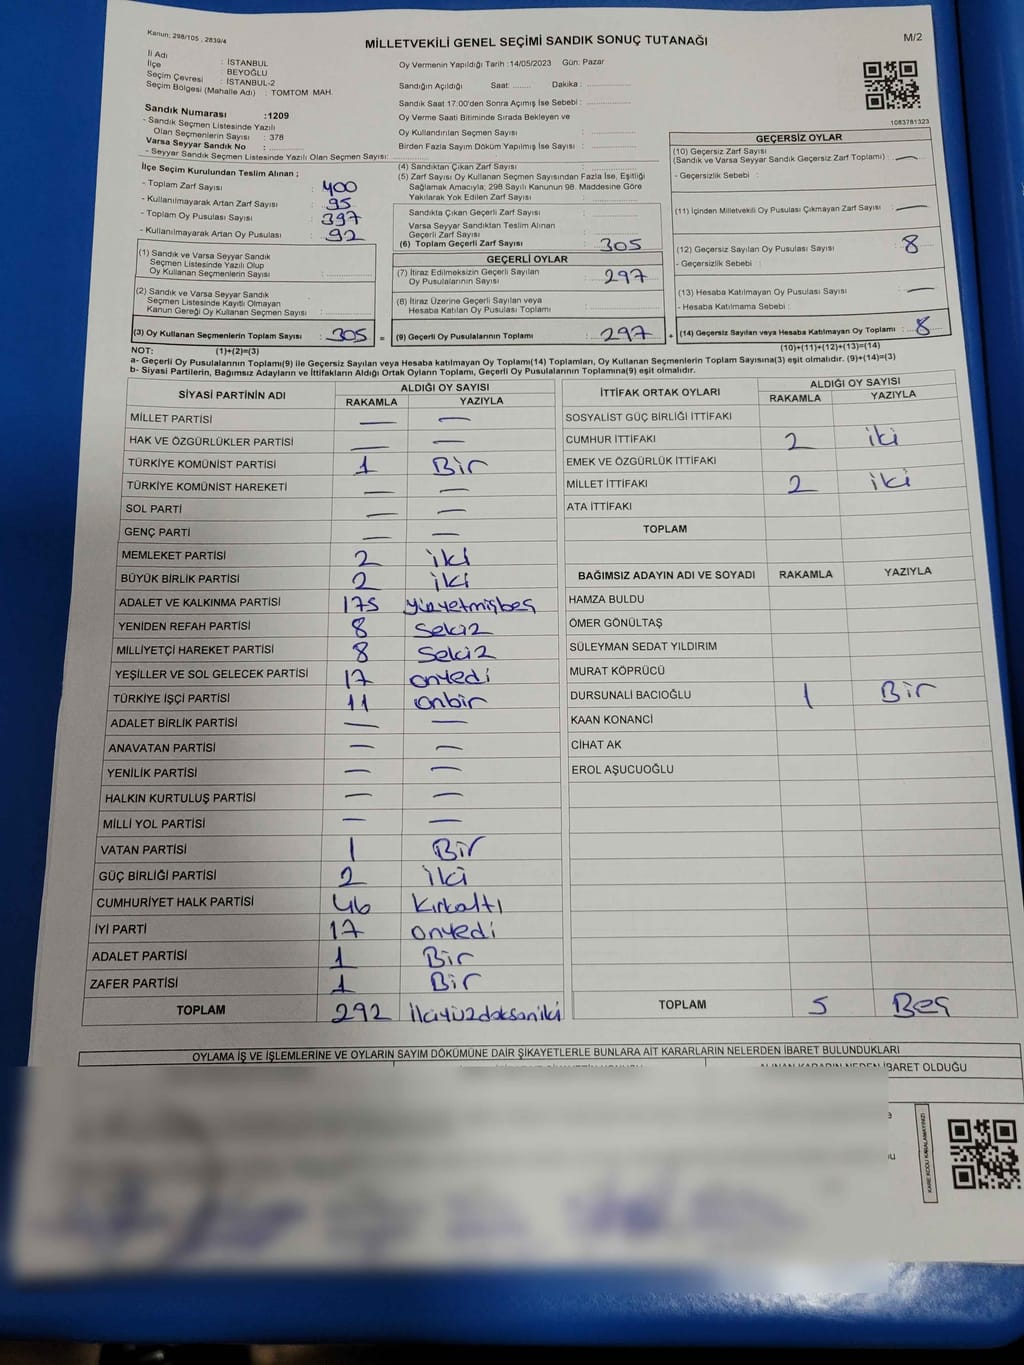 Kanun: 298/105 , 2839/4
MİLLETVEKİLİ GENEL SEÇİMİ SANDIK SONUÇ TUTANAĞI
M/2
İl Adı : İSTANBUL
İlçe : BEYOĞLU
Seçim Çevresi : İSTANBUL-2
Seçim Bölgesi (Mahalle Adı) : TOMTOM MAH.
Sandık Numarası :1209
- Sandık Seçmen Listesinde Yazılı
Olan Seçmenlerin Sayısı : 378
Varsa Seyyar Sandık No :
- Seyyar Sandık Seçmen Listesinde Yazılı Olan Seçmen Sayısı:
Oy Vermenin Yapıldığı Tarih :14/05/2023 Gün: Pazar
Sandığın Açıldığı Saat: Dakika:
Sandık Saat 17:00'den Sonra Açımış İse Sebebi :
Oy Verme Saati Bitiminde Sırada Bekleyen ve
Oy Kullandırılan Seçmen Sayısı :
Birden Fazla Sayım Döküm Yapılmış İse Sayısı :
1083781323
İlçe Seçim Kurulundan Teslim Alınan ;
- Toplam Zarf Sayısı : 400
- Kullanılmayarak Artan Zarf Sayısı : 95
- Toplam Oy Pusulası Sayısı : 397
- Kullanılmayarak Artan Oy Pusulası : 92
(1) Sandık ve Varsa Seyyar Sandık
Seçmen Listesinde Yazılı Olup
Oy Kullanan Seçmenlerin Sayısı :
(2) Sandık ve Varsa Seyyar Sandık
Seçmen Listesinde Kayıtlı Olmayan
Kanun Gereği Oy Kullanan Seçmen Sayısı :
(3) Oy Kullanan Seçmenlerin Toplam Sayısı : 305
(4) Sandıktan Çıkan Zarf Sayısı :
(5) Zarf Sayısı Oy Kullanan Seçmen Sayısından Fazla İse, Eşitliği
Sağlamak Amacıyla; 298 Sayılı Kanunun 98. Maddesine Göre
Yakılarak Yok Edilen Zarf Sayısı :
Sandıkta Çıkan Geçerli Zarf Sayısı :
Varsa Seyyar Sandıktan Teslim Alınan
Geçerli Zarf Sayısı :
(6) Toplam Geçerli Zarf Sayısı : 305
GEÇERLİ OYLAR
(7) İtiraz Edilmeksizin Geçerli Sayılan
Oy Pusulalarının Sayısı : 297
(8) İtiraz Üzerine Geçerli Sayılan veya
Hesaba Katılan Oy Pusulası Toplamı :
= (9) Geçerli Oy Pusulalarının Toplamı : 297
GEÇERSİZ OYLAR
(10) Geçersiz Zarf Sayısı
(Sandık ve Varsa Seyyar Sandık Geçersiz Zarf Toplamı) : —
- Geçersizlik Sebebi :
(11) İçinden Milletvekili Oy Pusulası Çıkmayan Zarf Sayısı : —
(12) Geçersiz Sayılan Oy Pusulası Sayısı : 8
- Geçersizlik Sebebi :
(13) Hesaba Katılmayan Oy Pusulası Sayısı : —
- Hesaba Katılmama Sebebi :
+ (14) Geçersiz Sayılan veya Hesaba Katılmayan Oy Toplamı : 8
NOT: (1)+(2)=(3)
(10)+(11)+(12)+(13)=(14)
a- Geçerli Oy Pusulalarının Toplamı(9) ile Geçersiz veya Hesaba katılmayan Oy Toplamı(14) Toplamları, Oy Kullanan Seçmenlerin Toplam Sayısına(3) eşit olmalıdır. (9)+(14)=(3)
b- Siyasi Partilerin, Bağımsız Adayların ve İttifakların Aldığı Ortak Oyların Toplamı, Geçerli Oy Pusulalarının Toplamına(9) eşit olmalıdır.
SİYASİ PARTİNİN ADI ALDIĞI OY SAYISI
RAKAMLA YAZIYLA
MİLLET PARTİSİ — —
HAK VE ÖZGÜRLÜKLER PARTİSİ — —
TÜRKİYE KOMÜNİST PARTİSİ 1 Bir
TÜRKİYE KOMÜNİST HAREKETİ — —
SOL PARTİ — —
GENÇ PARTİ — —
MEMLEKET PARTİSİ 2 iki
BÜYÜK BİRLİK PARTİSİ 2 iki
ADALET VE KALKINMA PARTİSİ 175 yüzyetmişbeş
YENİDEN REFAH PARTİSİ 8 Sekiz
MİLLİYETÇİ HAREKET PARTİSİ 8 Sekiz
YEŞİLLER VE SOL GELECEK PARTİSİ 17 onyedi
TÜRKİYE İŞÇİ PARTİSİ 11 onbir
ADALET BİRLİK PARTİSİ — —
ANAVATAN PARTİSİ — —
YENİLİK PARTİSİ — —
HALKIN KURTULUŞ PARTİSİ — —
MİLLİ YOL PARTİSİ — —
VATAN PARTİSİ 1 Bir
GÜÇ BİRLİĞİ PARTİSİ 2 iki
CUMHURİYET HALK PARTİSİ 46 Kırkaltı
İYİ PARTİ 17 onyedi
ADALET PARTİSİ 1 Bir
ZAFER PARTİSİ 1 Bir
TOPLAM 292 ikiyüzdoksaniki
İTTİFAK ORTAK OYLARI ALDIĞI OY SAYISI
RAKAMLA YAZIYLA
SOSYALİST GÜÇ BİRLİĞİ İTTİFAKI
CUMHUR İTTİFAKI 2 iki
EMEK VE ÖZGÜRLÜK İTTİFAKI
MİLLET İTTİFAKI 2 iki
ATA İTTİFAKI
TOPLAM
BAĞIMSIZ ADAYIN ADI VE SOYADI RAKAMLA YAZIYLA
HAMZA BULDU
ÖMER GÖNÜLTAŞ
SÜLEYMAN SEDAT YILDIRIM
MURAT KÖPRÜCÜ
DURSUNALİ BACIOĞLU 1 Bir
KAAN KONANCİ
CİHAT AK
EROL AŞUCUOĞLU
TOPLAM 5 Beş
OYLAMA İŞ VE İŞLEMLERİNE VE OYLARIN SAYIM DÖKÜMÜNE DAİR ŞİKAYETLERLE BUNLARA AİT KARARLARIN NELERDEN İBARET BULUNDUKLARI
ALINAN KARARIN NEDEN İBARET OLDUĞU
KARE KODU KARALAMAYINIZ!